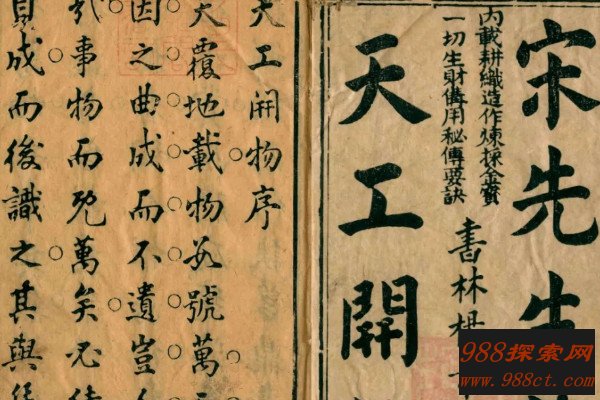 宋先生
内載耕織造作煉採金寶
一切生財備用秘傳要訣
天工開
書林楊
天工開物序
天覆地載物数號萬
因之曲成而不遺豈人
事物而既萬矣必待
成而後識之其與
988探索网
www.988ct.com